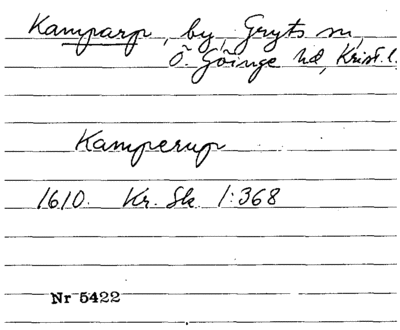 Kamparp, by, Gryts sn,
Ö. Göinge hd, Krist. l.
Kamperup
1610. Kr. Sk. 1:368
Nr 5422